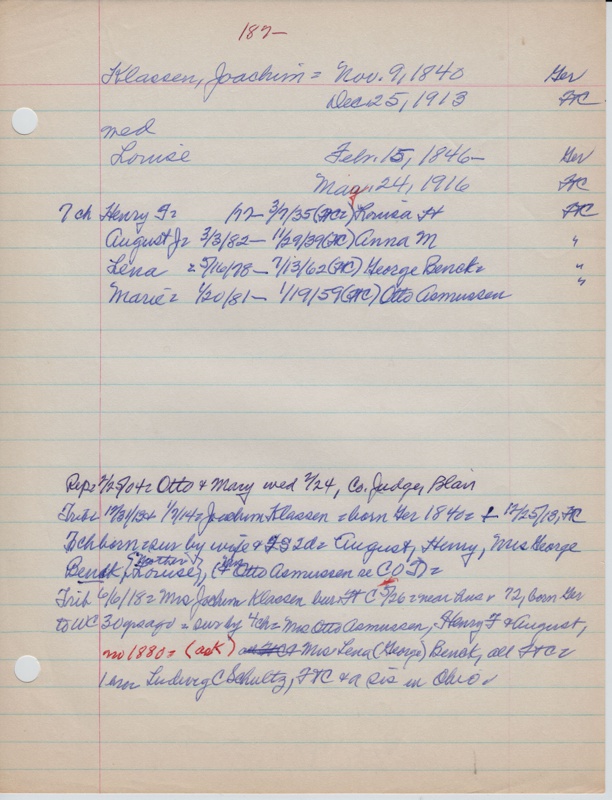 187-
Klassen, Joachim = Nov. 9, 1840 Ger
Dec 25, 1913 FtC
med
Louise Febr. 15, 1846- Ger
May 24, 1916 FtC
7 ch Henry F= /77- 3/7/35 (FtC=) Louisa H FtC
August J= 3/3/82- 11/29/39 (FtC) Anna M "
Lena = 5/16/78- 7/13/62 (FtC) George Benck= "
Marie= 1/20/81- 1/19/59 (FtC) Otto Asmussen "
Rep= 2/25/04= Otto & Mary wed 2/24, Co. Judge, Blair
Trib 12/31/13 & 1/7/14= Joachim Klassen = born Ger 1840= + 12/25/13, FtC
7ch born = sur by wife & 2S 2d= August, Henry, Mrs George
Benck, Louise, Otto Asmussen
Trib 6/6/18= Mrs Jochim Klassen bur Ft C 5/26 = near Aus = 72, born Ger
to WC 30 yrs ago = sur by 4ch= Mrs Otto Asmussen, Henry F & August,
no 1880= (ask) Mrs Lena (George) Benck, all FtC=
1 bror Ludwig C Schultz, FtC & a sis in Ohio